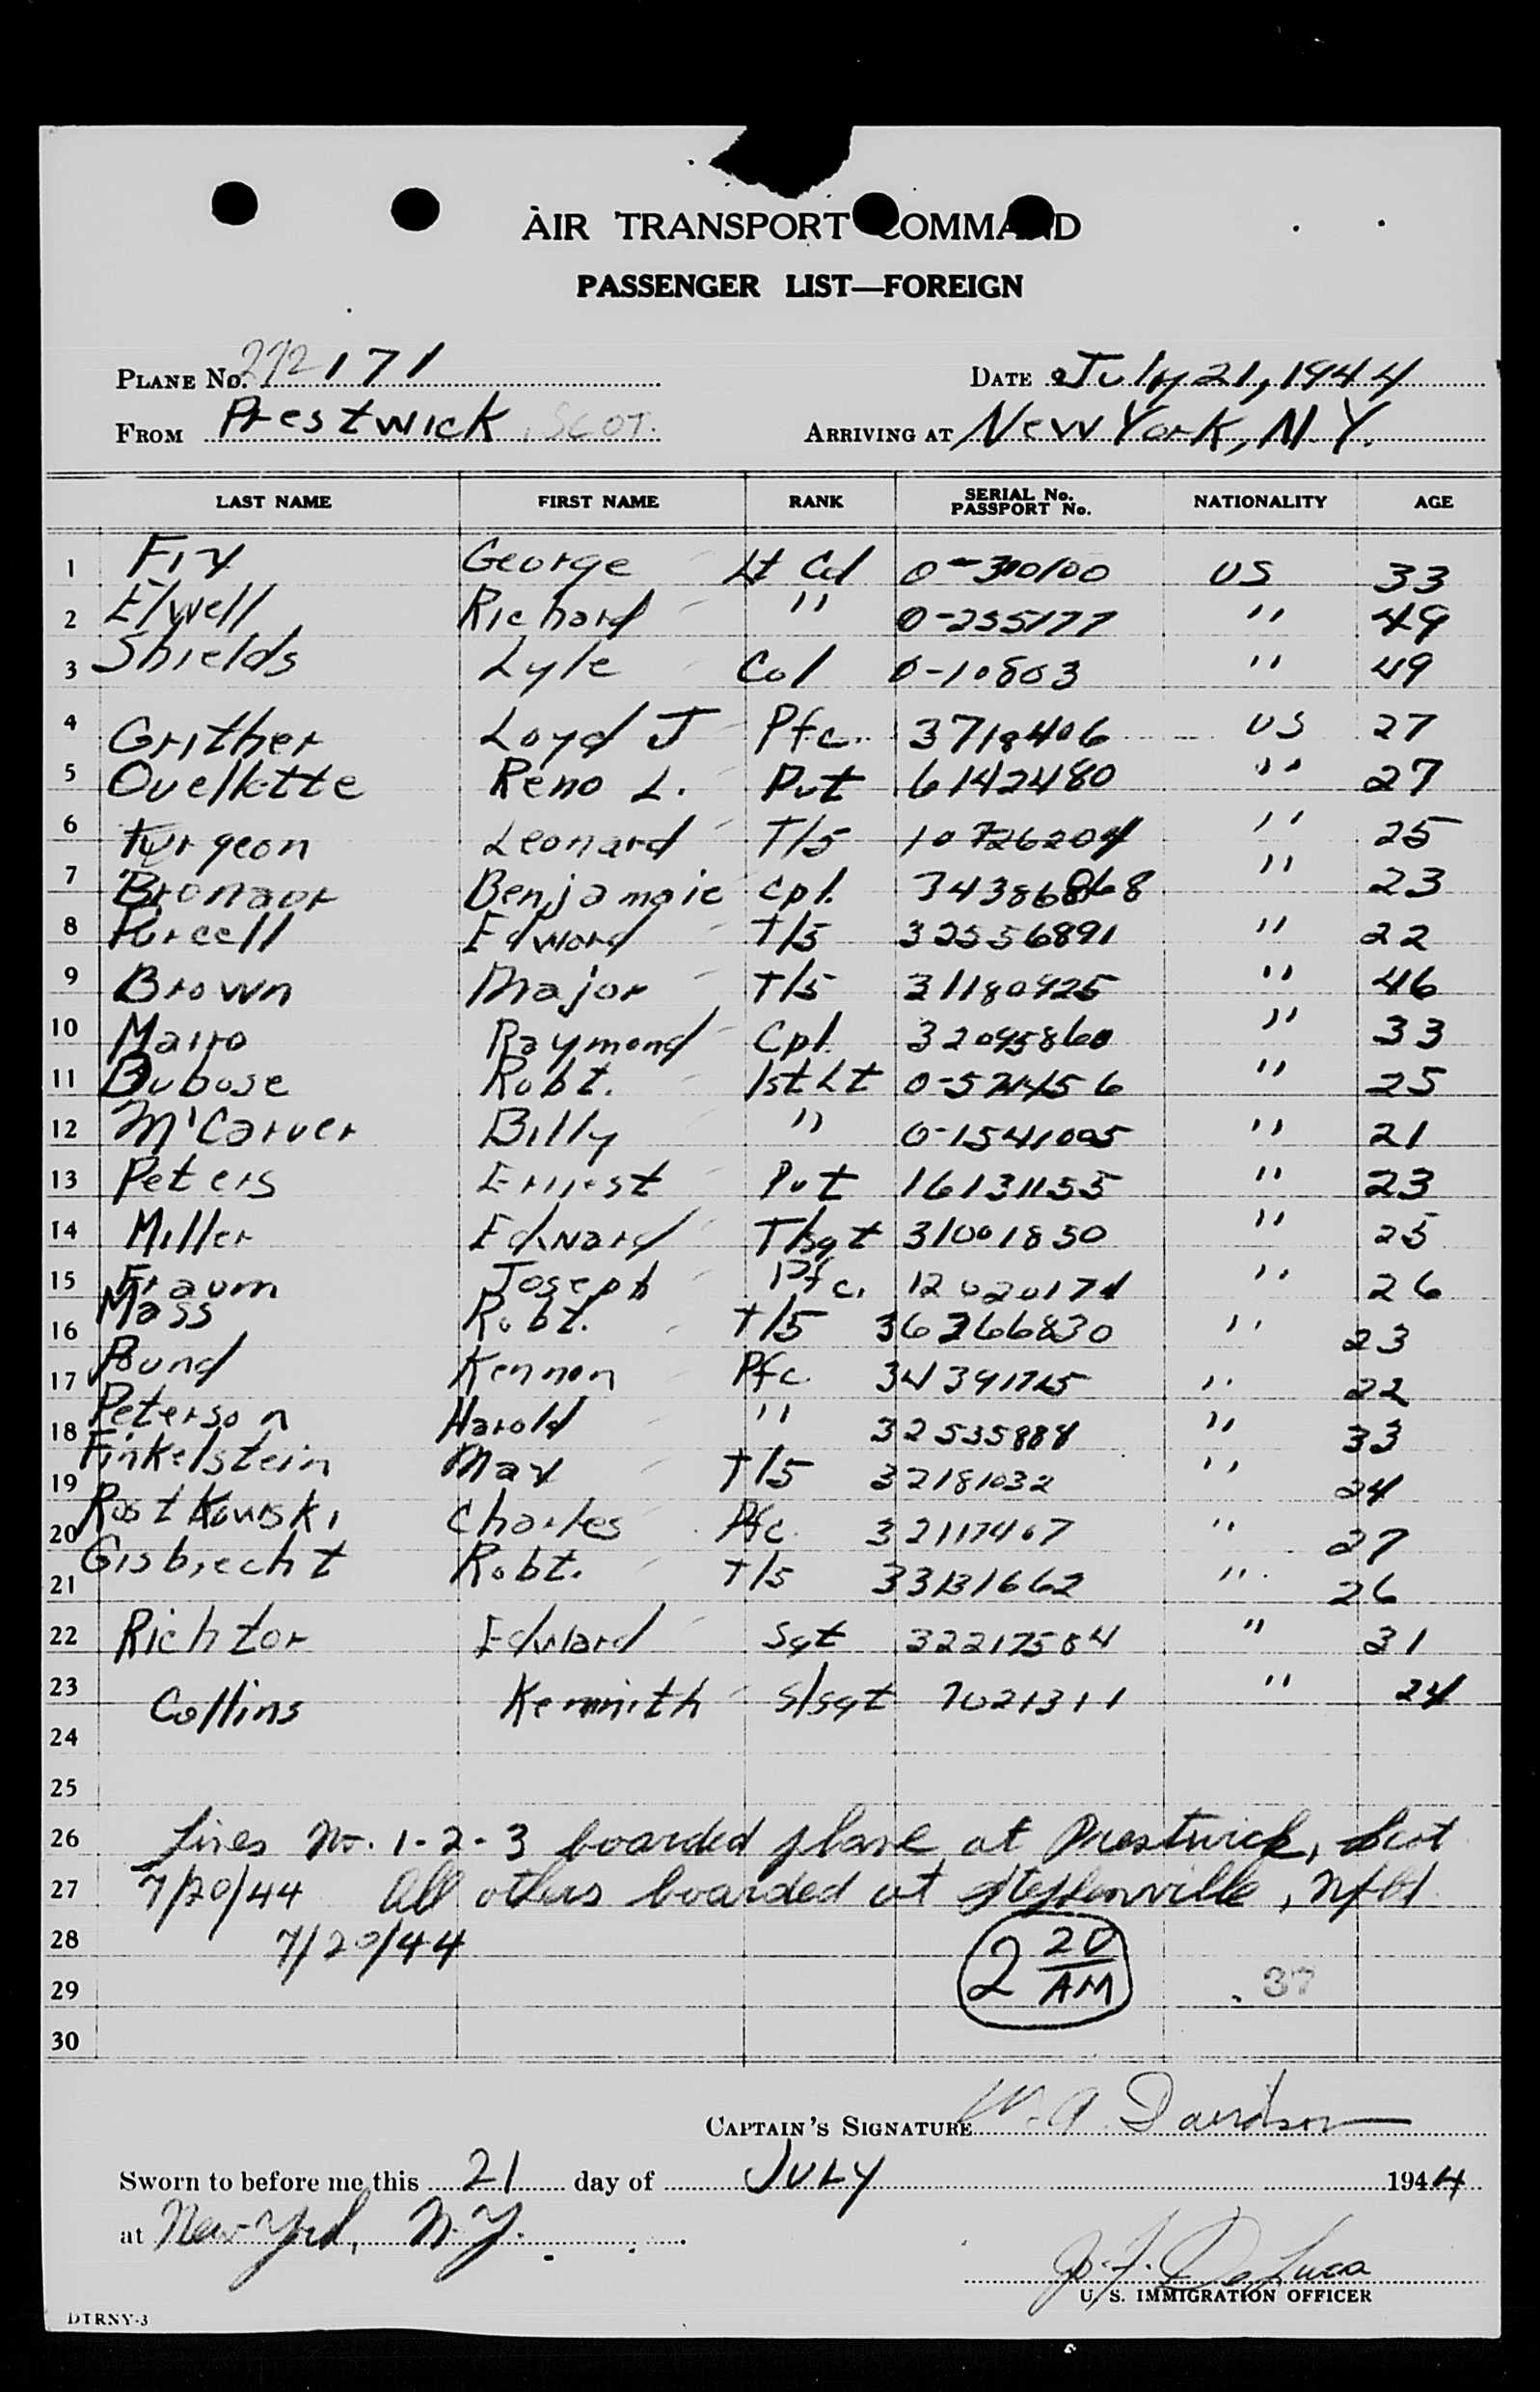 AIR TRANSPORT COMMAND
PASSENGER LIST—FOREIGN
PLANE No. 272171 DATE July 21, 1944
FROM Prestwick, SCOT. ARRIVING AT New York, N.Y.
LAST NAME FIRST NAME RANK SERIAL No. PASSPORT No. NATIONALITY AGE
1 Fix George Lt Col 0-300100 US 33
2 Elwell Richard " 0-255177 " 49
3 Shields Lyle Col 0-10803 " 49
4 Grither Loyd J Pfc. 3718406 US 27
5 Ouellette Reno L. Pvt 6142480 " 27
6 Turgeon Leonard T/5 10726204 " 25
7 Benjamaie Cpl. " 23
8 Purcell Edward T/5 32556891 " 22
9 Brown Major T/5 31180925 " 46
10 Mairo Raymond Cpl. 32095860 " 33
11 Dubose Robt. 1st Lt " 25
12 McCarver Billy " 0-1541005 " 21
13 Peters Ernest Pvt 16131155 " 23
14 Miller Edward T/sgt 31001850 " 25
15 Fraum Joseph Pfc. 12020171 " 26
16 Mass Robt. T/5 36266830 " 23
17 Pound Kennon Pfc. 34391765 " 22
18 Peterson Harold " 32535888 " 33
19 Finkelstein Max T/5 32181032 " 24
20 Rostkowski Charles Pfc. 32117407 " 27
21 Gisbrecht Robt. T/5 33131662 " 26
22 Richtor Edward Sgt 32217584 " 31
23 Collins Kennith S/sgt 7021311 " 24
24
25
26 Lines No. 1-2-3 boarded plane at Prestwick, Scot
27 7/20/44 All others boarded at Stephenville, Nfld.
28 7/20/44 2 20 AM
29 37
30
CAPTAIN'S SIGNATURE W. A. Davidson
Sworn to before me this 21 day of JULY 1944
at New York, N.Y.
J. F. De Luca
U. S. IMMIGRATION OFFICER
DTRNY-3